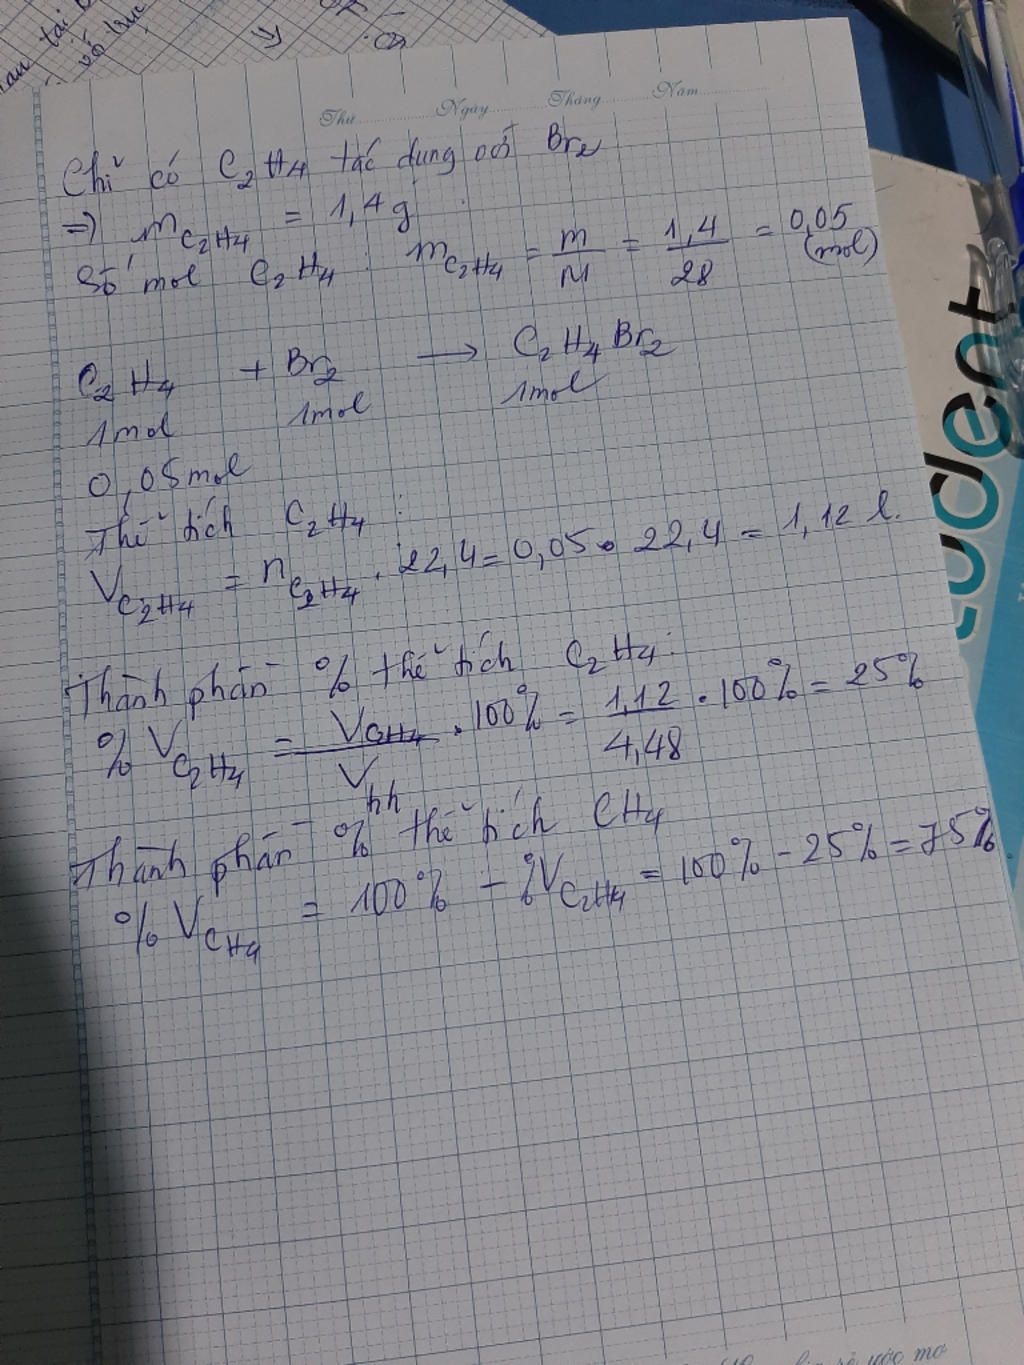 Thứ Ngày Tháng Năm
Chỉ có C₂H₄ tác dụng với Br₂
=> m C₂H₄ = 1,4g
Số mol C₂H₄ : m C₂H₄ = m/M = 1,4/28 = 0,05 (mol)
C₂H₄ + Br₂ → C₂H₄Br₂
1mol 1mol 1mol
0,05mol
Thể tích C₂H₄ :
V C₂H₄ = n C₂H₄ . 22,4 = 0,05 . 22,4 = 1,12 l.
Thành phần % thể tích C₂H₄ :
% V C₂H₄ = V CH₄/V hh . 100% = 1,12/4,48 . 100% = 25%
Thành phần % thể tích CH₄
% V CH₄ = 100% - %V C₂H₄ = 100% - 25% = 75%
udent